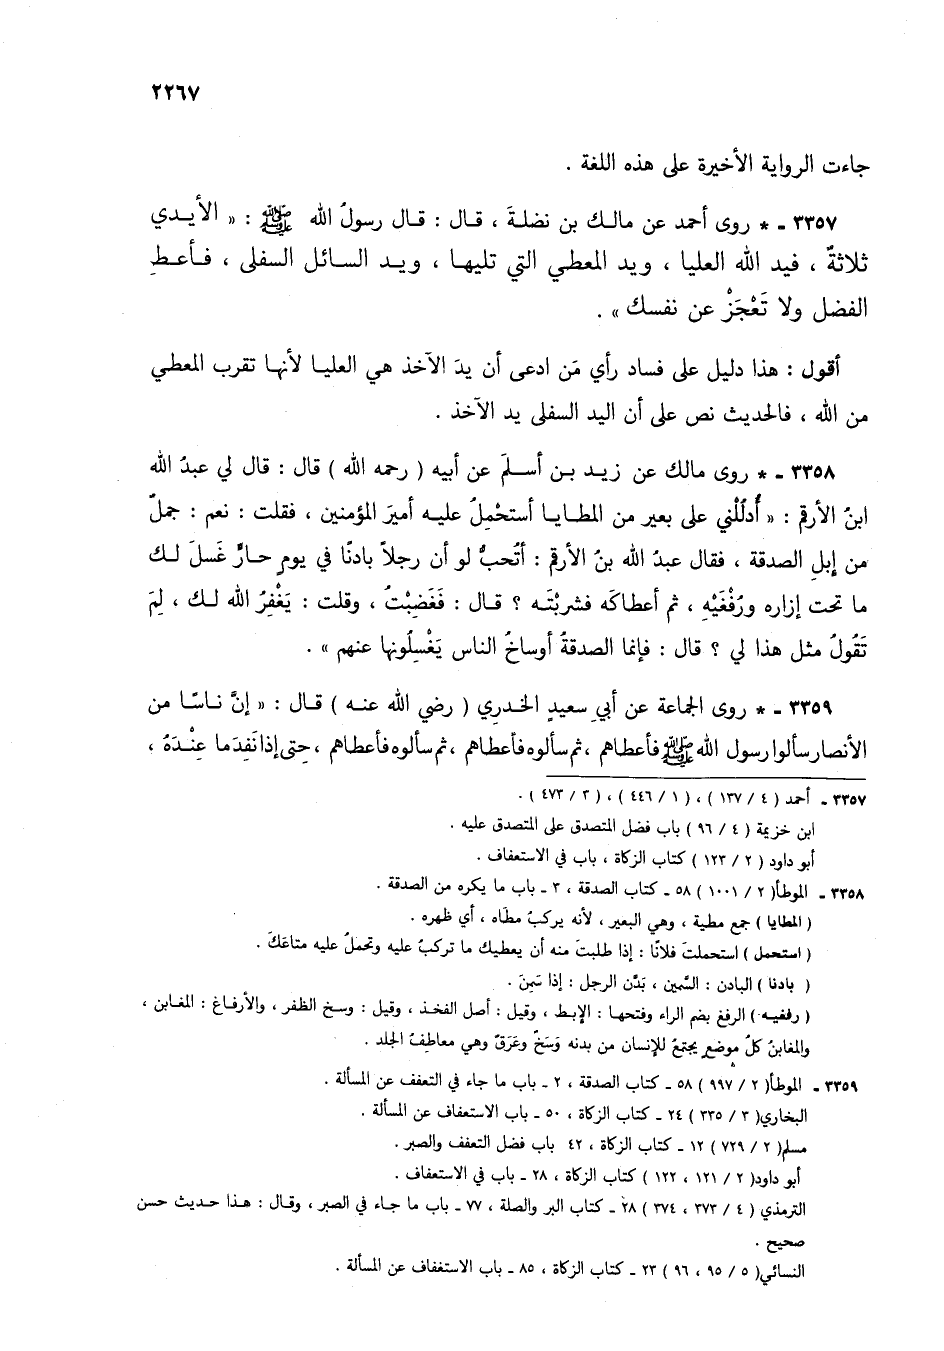 ٢٢٦٧
جاءت الرواية الأخيرة على هذه اللغة .
٣٣٥٧ ـ * روى أحمد عن مالك بن نضلةَ ، قال : قال رسولُ الله ﷺ : « الأيدي
ثلاثةٌ ، فيد الله العليا ، ويد المعطي التي تليها ، ويد السائل السفلى ، فأعطِ
الفضل ولا تَعْجَزْ عن نفسك » .
أقول : هذا دليل على فساد رأي مَن ادعى أن يدَ الآخذ هي العليا لأنها تقرب المعطي
من الله ، فالحديث نص على أن اليد السفلى يد الآخذ .
٣٣٥٨ ـ * روى مالك عن زيد بن أسلمَ عن أبيه ( رحمه الله ) قال : قال لي عبدُ الله
ابنُ الأرقمِ : « أُدلُلْني على بعير من المطايا أستحْمِلُ عليه أميرَ المؤمنين ، فقلت : نعم : جملٌ
من إبلِ الصدقة ، فقال عبدُ الله بنُ الأرقمِ : أتُحبُّ لو أن رجلاً بادنًا في يومٍ حارٍّ غَسلَ لك
ما تحت إزاره ورُفْغَيْهِ ، ثم أعطاكَه فشربْتَه ؟ قال : فَغَضِبْتُ ، وقلت : يَغْفِرُ الله لك ، لِمَ
تَقُولُ مثل هذا لي ؟ قال : فإنما الصدقةُ أوساخُ الناس يَغْسِلُونها عنهم » .
٣٣٥٩ ـ * روى الجماعة عن أبي سعيدٍ الخدري ( رضي الله عنه ) قال : « إنَّ ناسًا من
الأنصار سألوا رسول الله ﷺ فأعطاهم ، ثم سألوه فأعطاهم ، ثم سألوه فأعطاهم ، حتى إذا نَفِدَ ما عِنْدَهُ ،
٣٣٥٧ ـ أحمد ( ٤ / ١٣٧ ) ، ( ١ / ٤٤٦ ) ، ( ٣ / ٤٧٣ ) .
ابن خزيمة ( ٤ / ٩٦ ) باب فضل المتصدق على المتصدق عليه .
أبو داود ( ٢ / ١٢٣ ) كتاب الزكاة ، باب في الاستعفاف .
٣٣٥٨ ـ الموطأ( ٢ / ١٠٠١ ) ٥٨ ـ كتاب الصدقة ، ٣ ـ باب ما يكره من الصدقة .
( المطايا ) جمع مطية ، وهي البعير ، لأنه يركبُ مطَاه ، أي ظهره .
( استحمل ) استحملتَ فلانًا : إذا طلبتَ منه أن يعطيك ما تركبُ عليه وتحملُ عليه متاعَكَ .
( بادنا ) البادن : السَّمين ، بَدَّن الرجل : إذا سَمِنَ .
( رفغيه ) الرفغ بضم الراء وفتحها : الإبط ، وقيل : أصل الفخذ ، وقيل : وسخ الظفر ، والأرفاغ : المغابن ،
والمغابنُ كلُ موضعٍ يجتمعُ للإنسان من بدنه وَسَخٌ وعَرَقٌ وهي معاطِفُ الجلد .
٣٣٥٩ ـ الموطأ( ٢ / ٩٩٧ ) ٥٨ ـ كتاب الصدقة ، ٢ ـ باب ما جاء في التعفف عن المسألة .
البخاري( ٣ / ٣٣٥ ) ٢٤ ـ كتاب الزكاة ، ٥٠ ـ باب الاستعفاف عن المسألة .
مسلم( ٢ / ٧٢٩ ) ١٢ ـ كتاب الزكاة ، ٤٢ باب فضل التعفف والصبر .
أبو داود( ٢ / ١٢١ ، ١٢٢ ) كتاب الزكاة ، ٢٨ ـ باب في الاستعفاف .
الترمذي ( ٤ / ٣٧٣ ، ٣٧٤ ) ٢٨ ـ كتاب البر والصلة ، ٧٧ ـ باب ما جاء في الصبر ، وقال : هذا حديث حسن
صحيح .
النسائي( ٥ / ٩٥ ، ٩٦ ) ٢٣ ـ كتاب الزكاة ، ٨٥ ـ باب الاستعفاف عن المسألة .